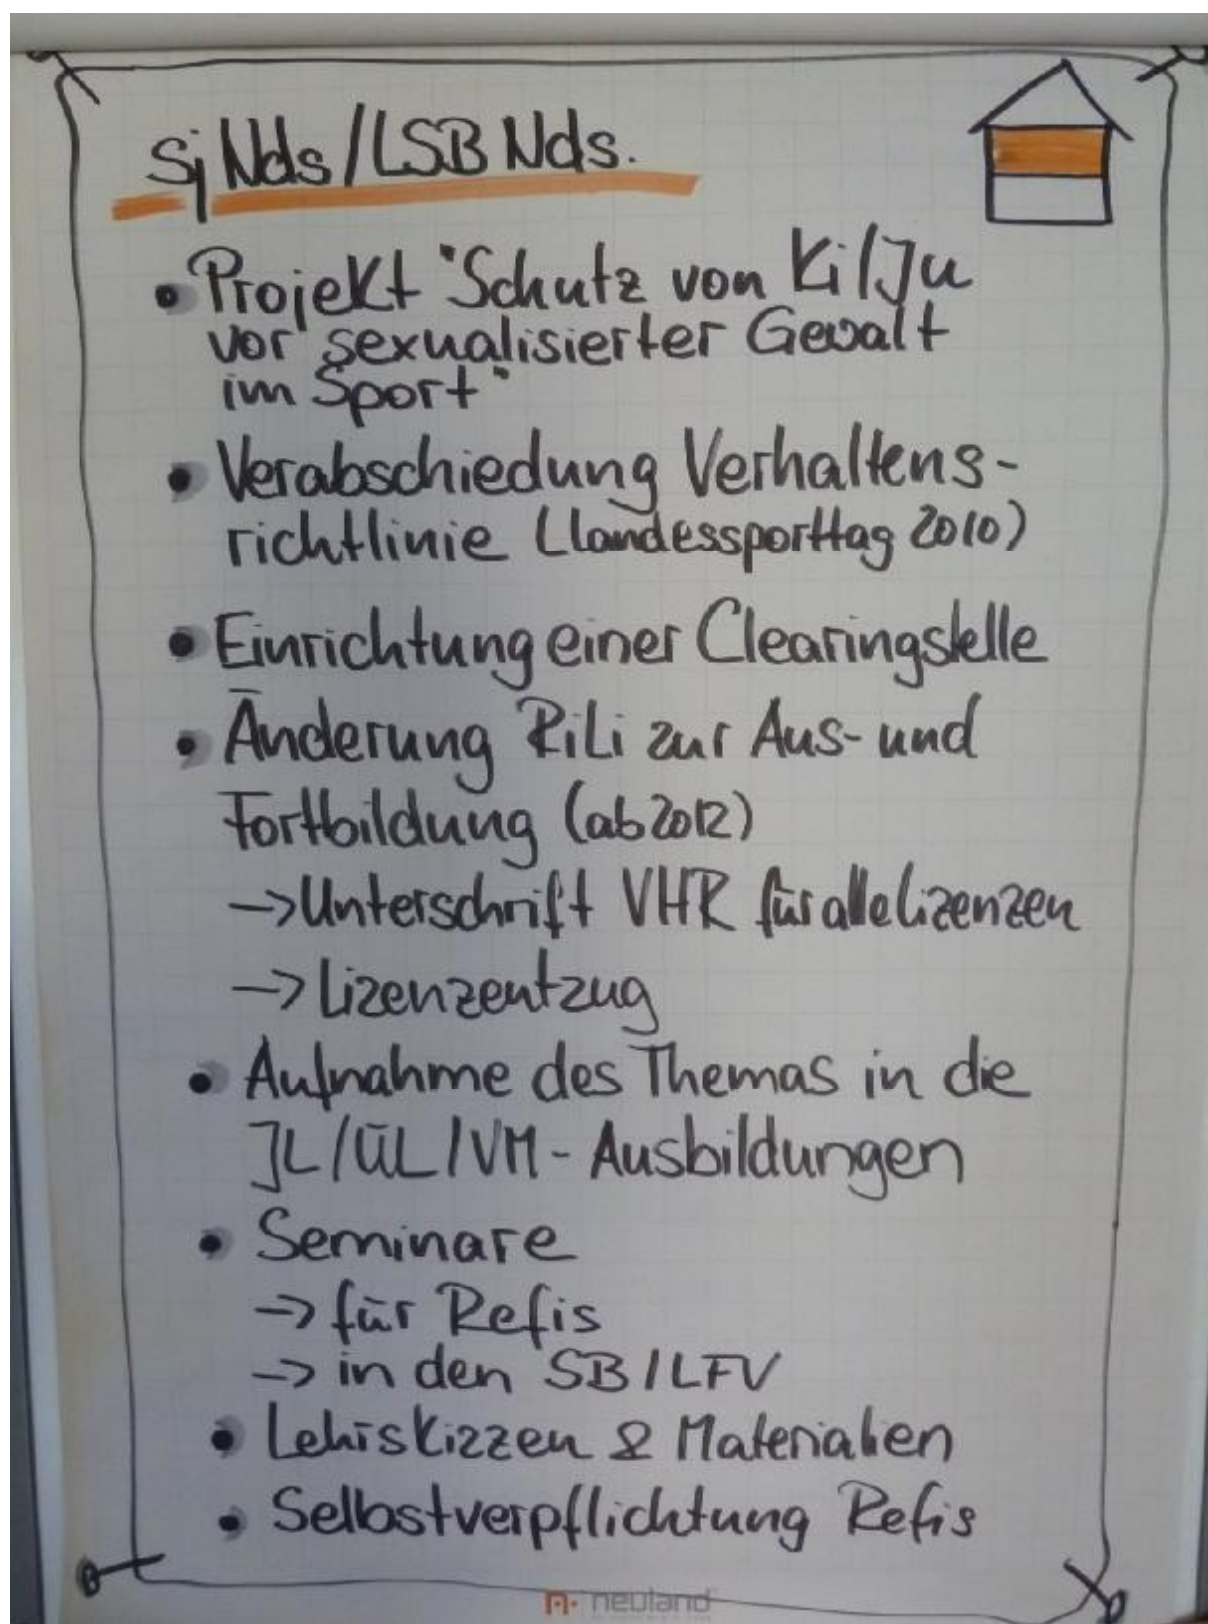 sj Nds/LSB Nds.
• Projekt "Schutz von Ki/Ju
vor sexualisierter Gewalt
im Sport"
• Verabschiedung Verhaltens-
richtlinie (Landessporttag 2010)
• Einrichtung einer Clearingstelle
• Änderung RiLi zur Aus- und
Fortbildung (ab 2012)
→ Unterschrift VHR für alle Lizenzen
→ Lizenzentzug
• Aufnahme des Themas in die
JL/ÜL/VM-Ausbildungen
• Seminare
→ für Refis
→ in den SB/LFV
• Lehrskizzen & Materialien
• Selbstverpflichtung Refis
n· neuland